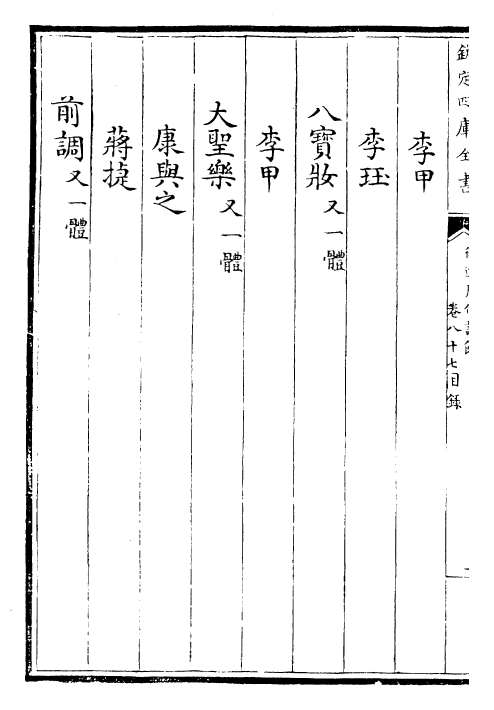 欽定四庫全書
卷八十七目錄
李甲
李珏
八寶妝又一體
李甲
大聖樂又一體
康與之
蔣捷
前調又一體